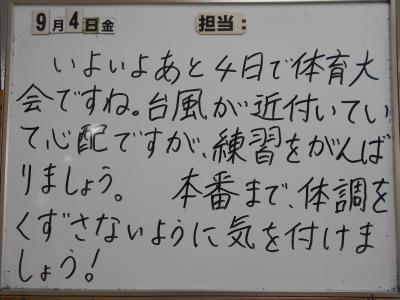 9月4日金 担当:
いよいよあと4日で体育大
会ですね。台風が近付いてい
て心配ですが、練習をがんば
りましょう。 本番まで、体調を
くずさないように気を付けま
しょう!